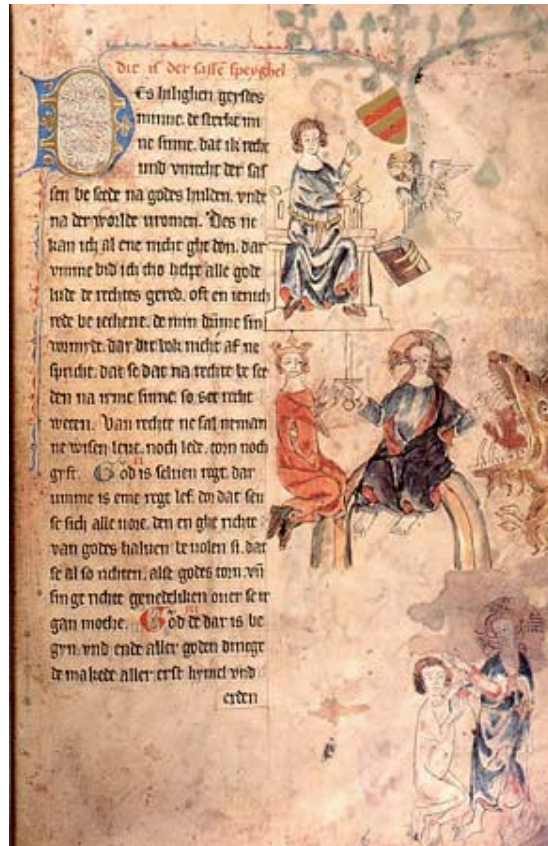 dit is der sasse speyghel
Des hilighen geystes
minne. de sterke mi
ne sinne. dat ik recht
vnd vnrecht der sas
sen be scede na godes hulden. vnde
na der worlde vromen. Des ne
kan ich al ene nicht ghe don. dar
vmme bid ich tho helpe alle gode
lude de rechtes gered. oft en ienich
rede be ieghene. de min dumme sin
vormyde. dar dit bok nicht af ne
spricht. dat se dat na rechte be sce
den na irme sinne. so set recht
weten. Van rechte ne sal neman
ne wisen leue. noch lede. torn noch
gyft. God is seluen regt. dar
umme is eme regt lef. dor dat seu
se sich alle uore. den en ghe richte
van godes haluen be uolen si. dat
se al so richten. alse godes torn. vn
sin ge richte genedeliken ouer se ir
gan moche. God de dar is be
gyn. vnd ende aller goden dinege
de makede aller erst hymel vnd
erden